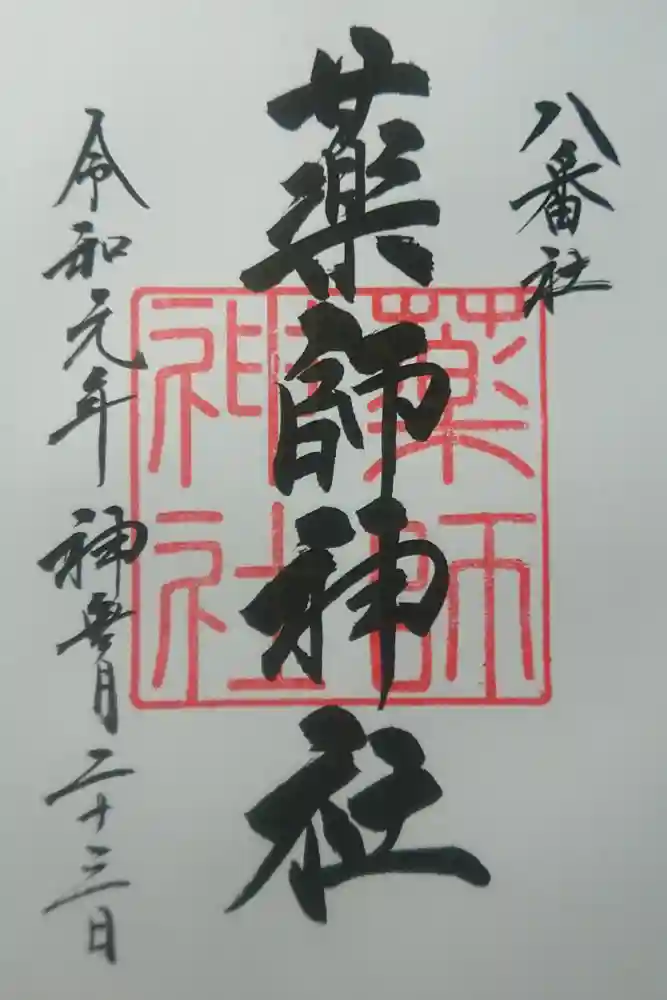 八番社
薬師神社
薬師
神社
令和元年神無月二十三日